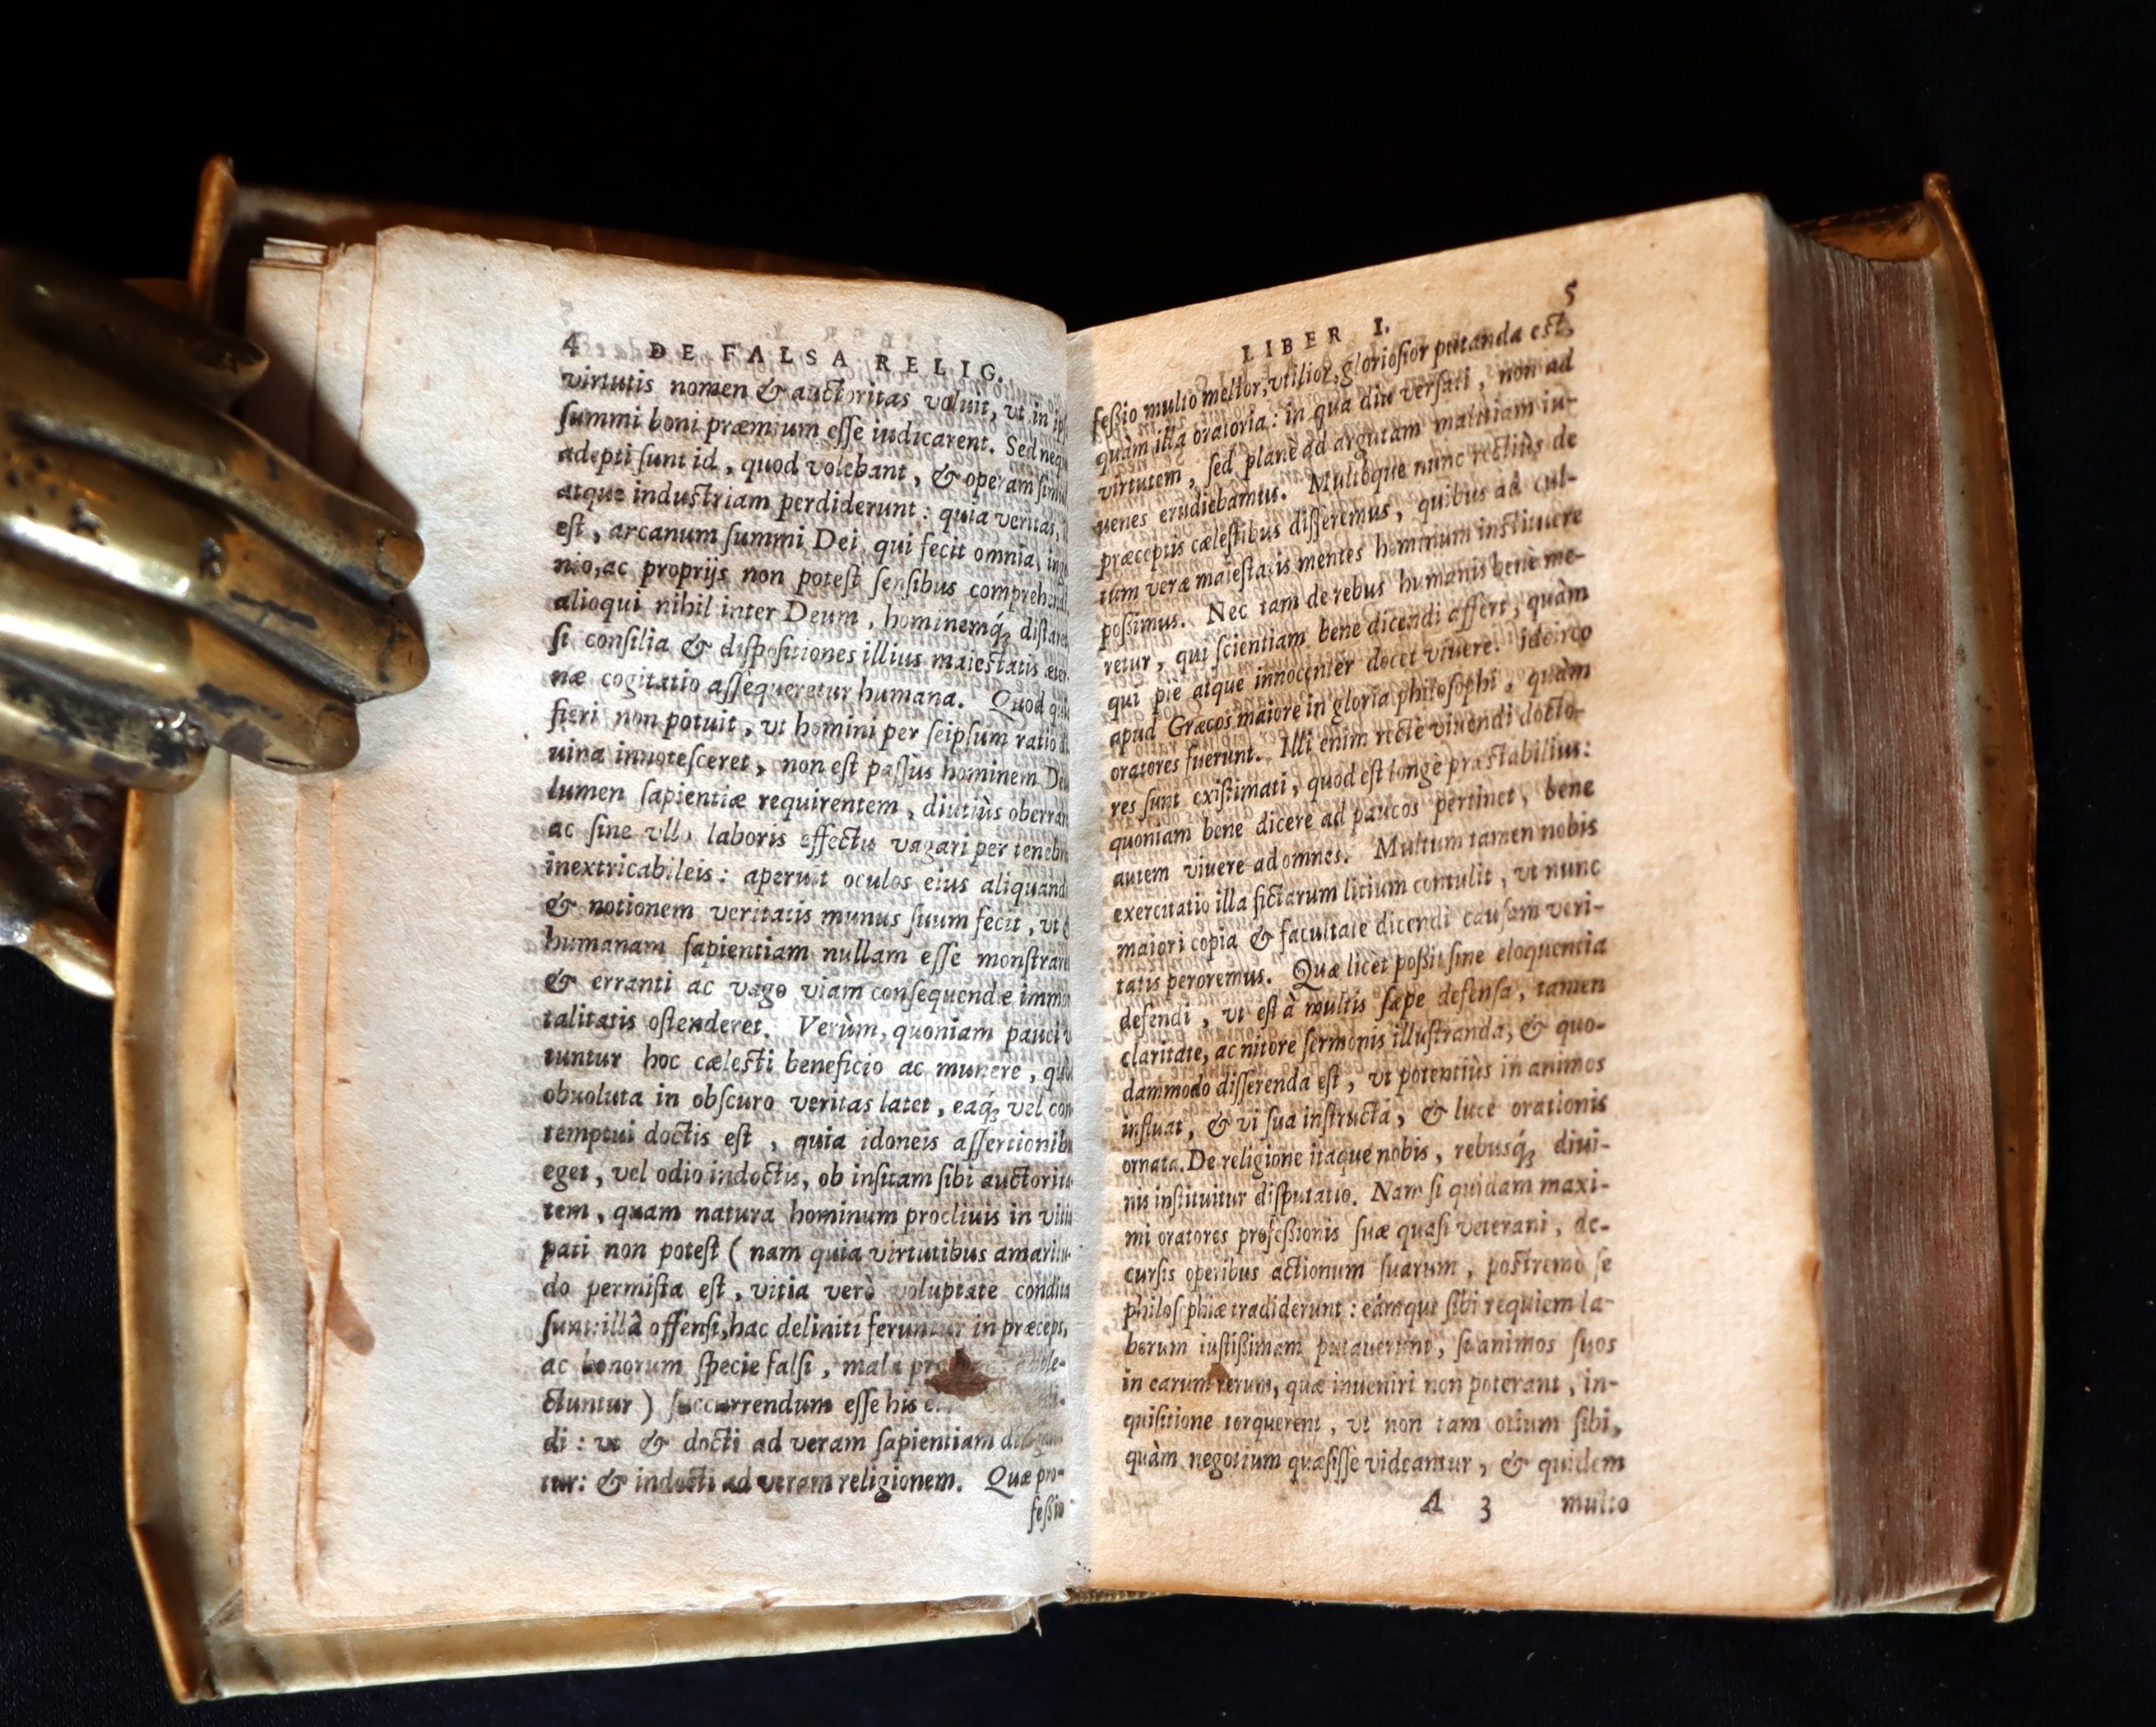 4 DE FALSA RELIG.
virtutis nomen & auctoritas voluit, vt in
summi boni præmium esse iudicarent. Sed neq
adepti sunt id, quod volebant, & operam simul
atque industriam perdiderunt: quia veritas,
est, arcanum summi Dei, qui fecit omnia, inge
nio, ac proprijs non potest sensibus comprehendi,
alioqui nihil inter Deum, hominemq́; distaret
si consilia & dispositiones illius maiestatis æter
næ cogitatio assequeretur humana. Quod quia
fieri non potuit, vt homini per seipsum ratio di
uina innotesceret, non est passus hominem Deus
lumen sapientiæ requirentem, diutiùs oberrare
ac sine vllo laboris effectu vagari per tenebras
inextricabileis: aperuit oculos eius aliquando
& notionem veritatis munus suum fecit, vt &
humanam sapientiam nullam esse monstraret
& erranti ac vago viam consequendæ immor
talitatis ostenderet. Verùm, quoniam pauci v
tuntur hoc cælesti beneficio ac munere, quòd
obuoluta in obscuro veritas latet, eaq́; vel con
temptui doctis est, quia idoneis assertionibus
eget, vel odio indoctis, ob insitam sibi auctorita
tem, quam natura hominum procliuis in vitia
pati non potest (nam quia virtutibus amaritu-
do permista est, vitia verò voluptate condita
sunt: illâ offensi, hac deliniti feruntur in præceps,
ac bonorum specie falsi, mala pro
ctuntur) succurrendum esse his
di: vt & docti ad veram sapientiam dirigan
tur: & indocti ad veram religionem. Quæ pro-
feßio
LIBER I. 5
feßio multo melior, vtilior, gloriosior putanda est,
quàm illa oratoria: in qua diu versati, non ad
virtutem, sed planè ad argutam malitiam iu-
uenes erudiebamus. Multoque nunc rectiùs de
præceptis cælestibus disseremus, quibus ad cul-
tum veræ maiestatis mentes hominum instituere
poßimus. Nec tam de rebus humanis bene me-
retur, qui scientiam bene dicendi affert, quàm
qui pie atque innocenter docet viuere. idcirco
apud Græcos maiore in gloria philosophi, quàm
oratores fuerunt. Illi enim rectè viuendi docto-
res sunt existimati, quod est longè præstabilius:
quoniam bene dicere ad paucos pertinet, bene
autem viuere ad omnes. Multum tamen nobis
exercitatio illa fictarum litium contulit, vt nunc
maiori copia & facultate dicendi causam veri-
tatis peroremus. Quæ licet poßit sine eloquentia
defendi, vt est à multis sæpe defensa, tamen
claritate, ac nitore sermonis illustranda, & quo-
dammodo disserenda est, vt potentiùs in animos
influat, & vi sua instructa, & luce orationis
ornata. De religione itaque nobis, rebusq́; diui-
nis instituitur disputatio. Nam si quidam maxi-
mi oratores profeßionis suæ quasi veterani, de-
cursis operibus actionum suarum, postremò se
philosophiæ tradiderunt: eámque sibi requiem la-
borum iustißimam putauerunt, si animos suos
in earum rerum, quæ inueniri non poterant, in-
quisitione torquerent, vt non tam otium sibi,
quàm negotium quæsisse videantur, & quidem
A 3 multo